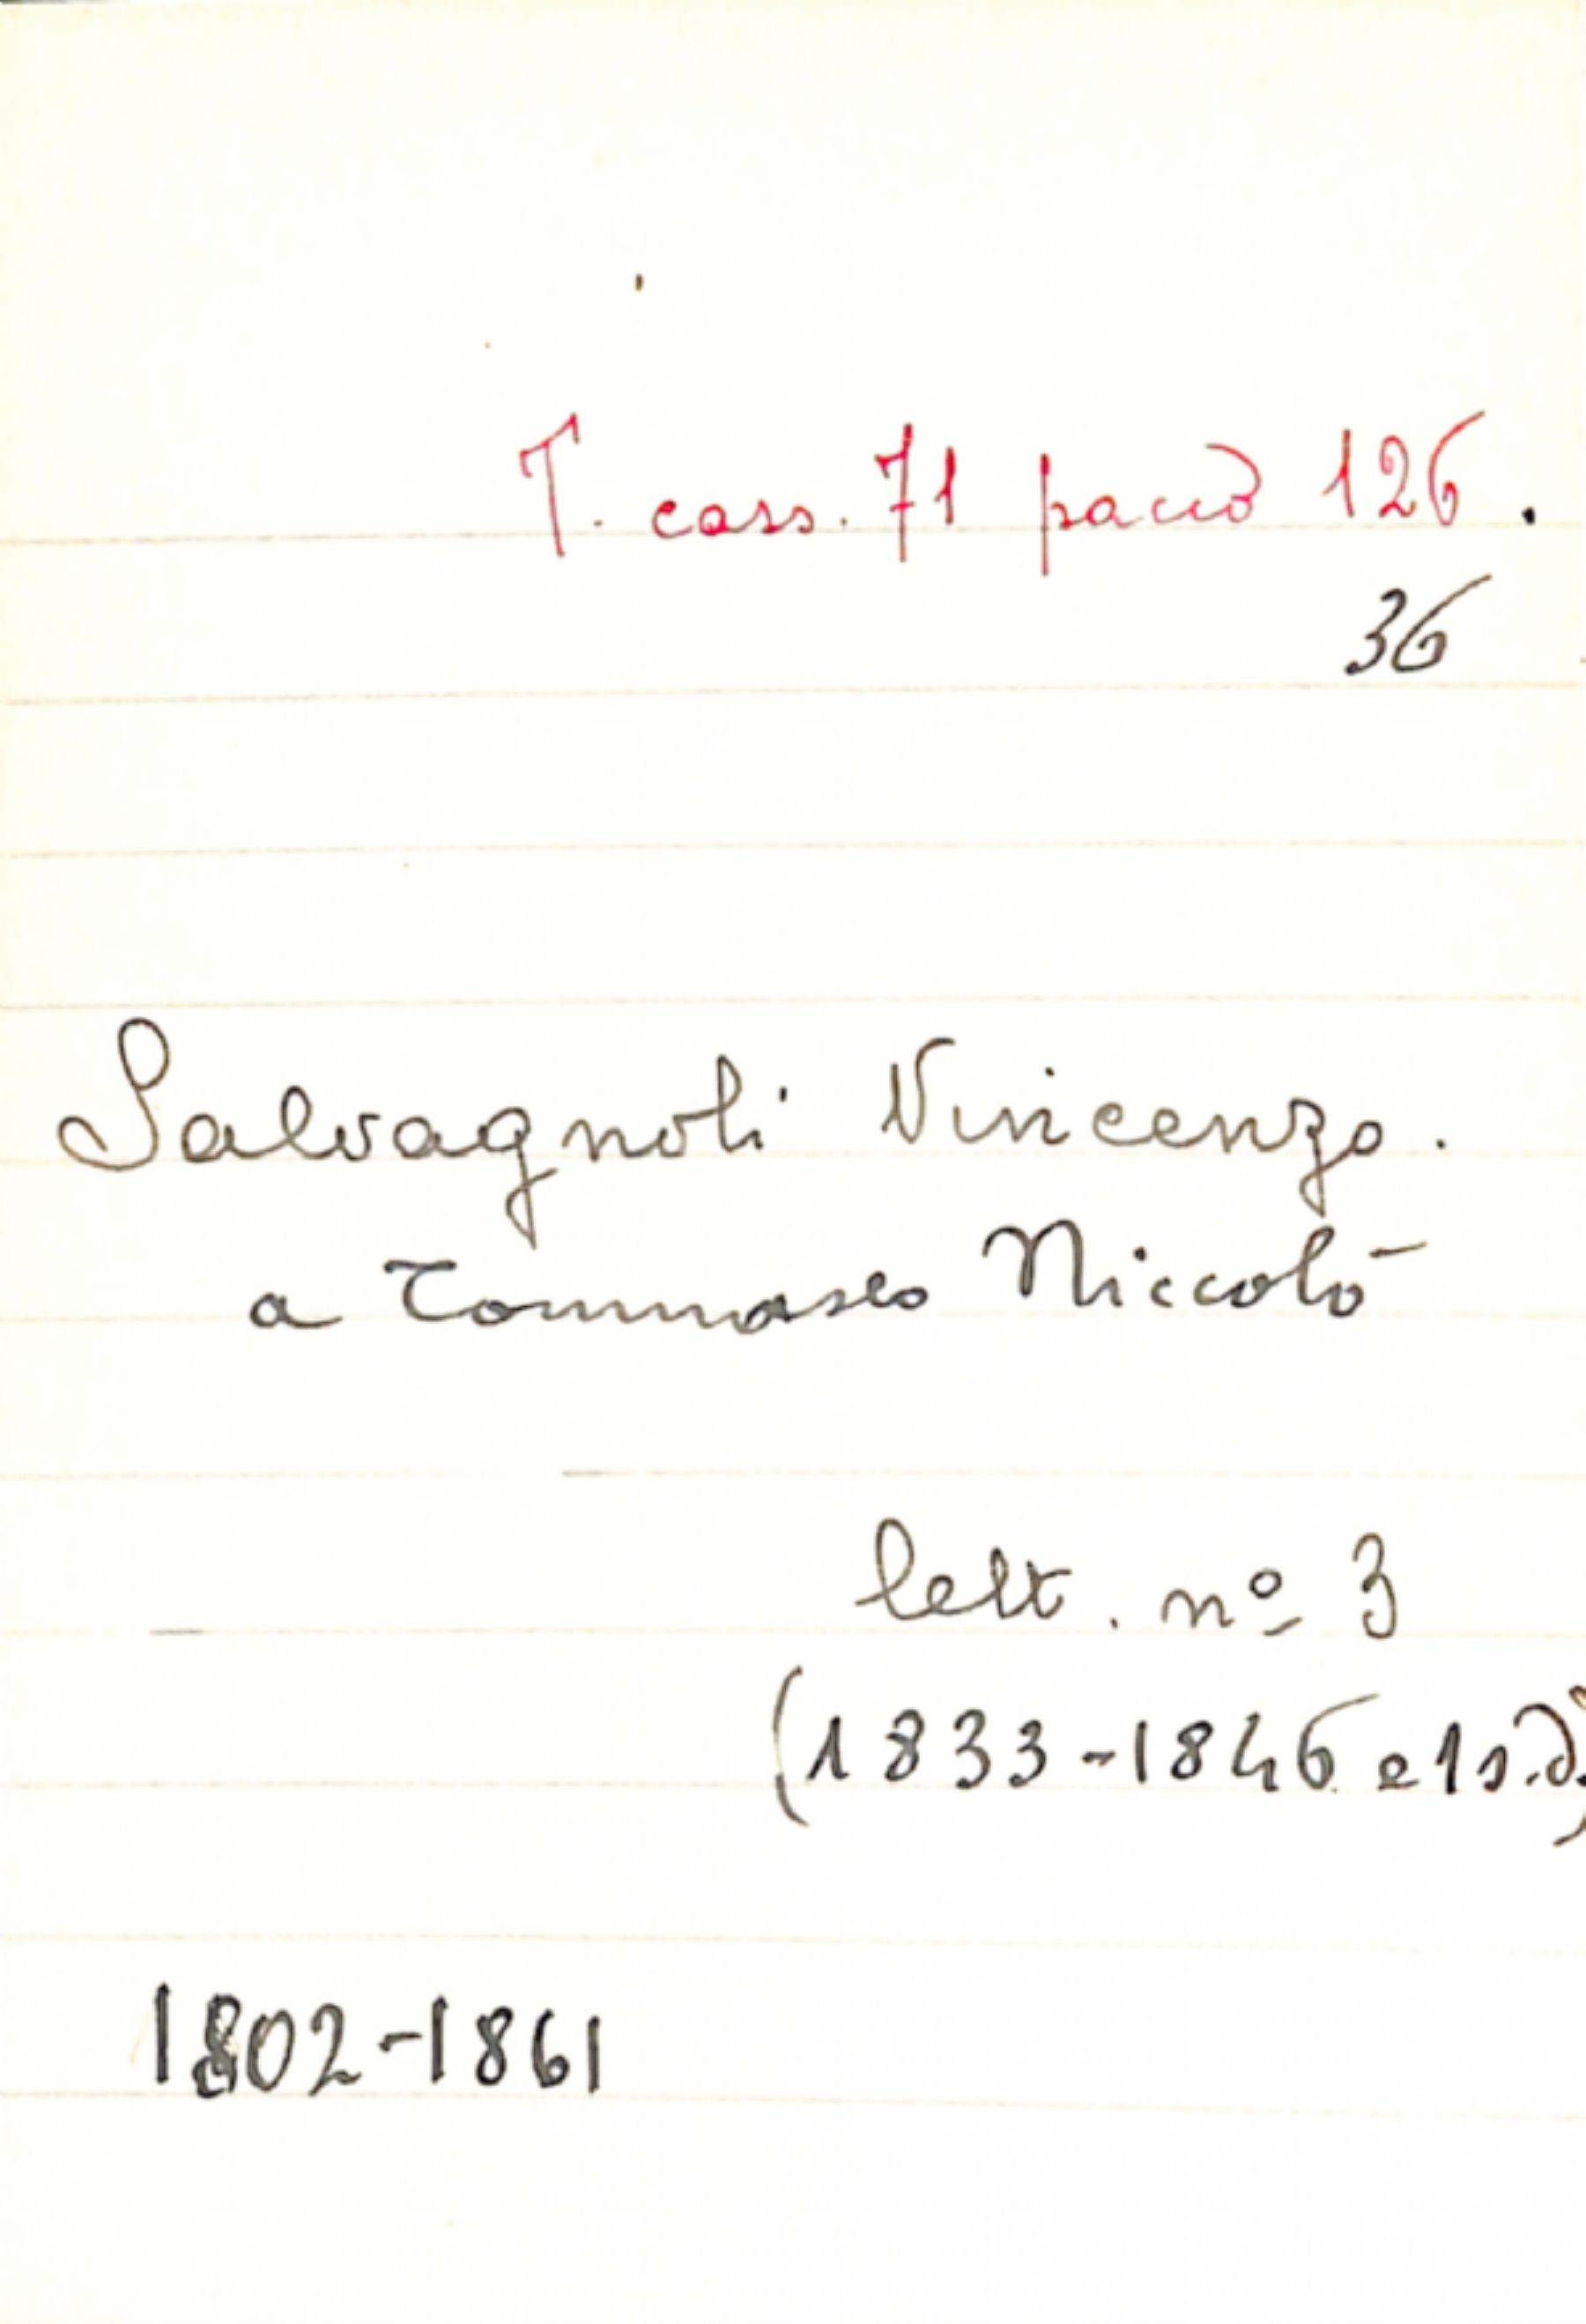 T. cass. 71 pacco 126.
36
Salvagnoli Vincenzo.
a Tommaseo Niccolò
lett. nº 3
(1833-1846 e 1 s.d.)
1802-1861